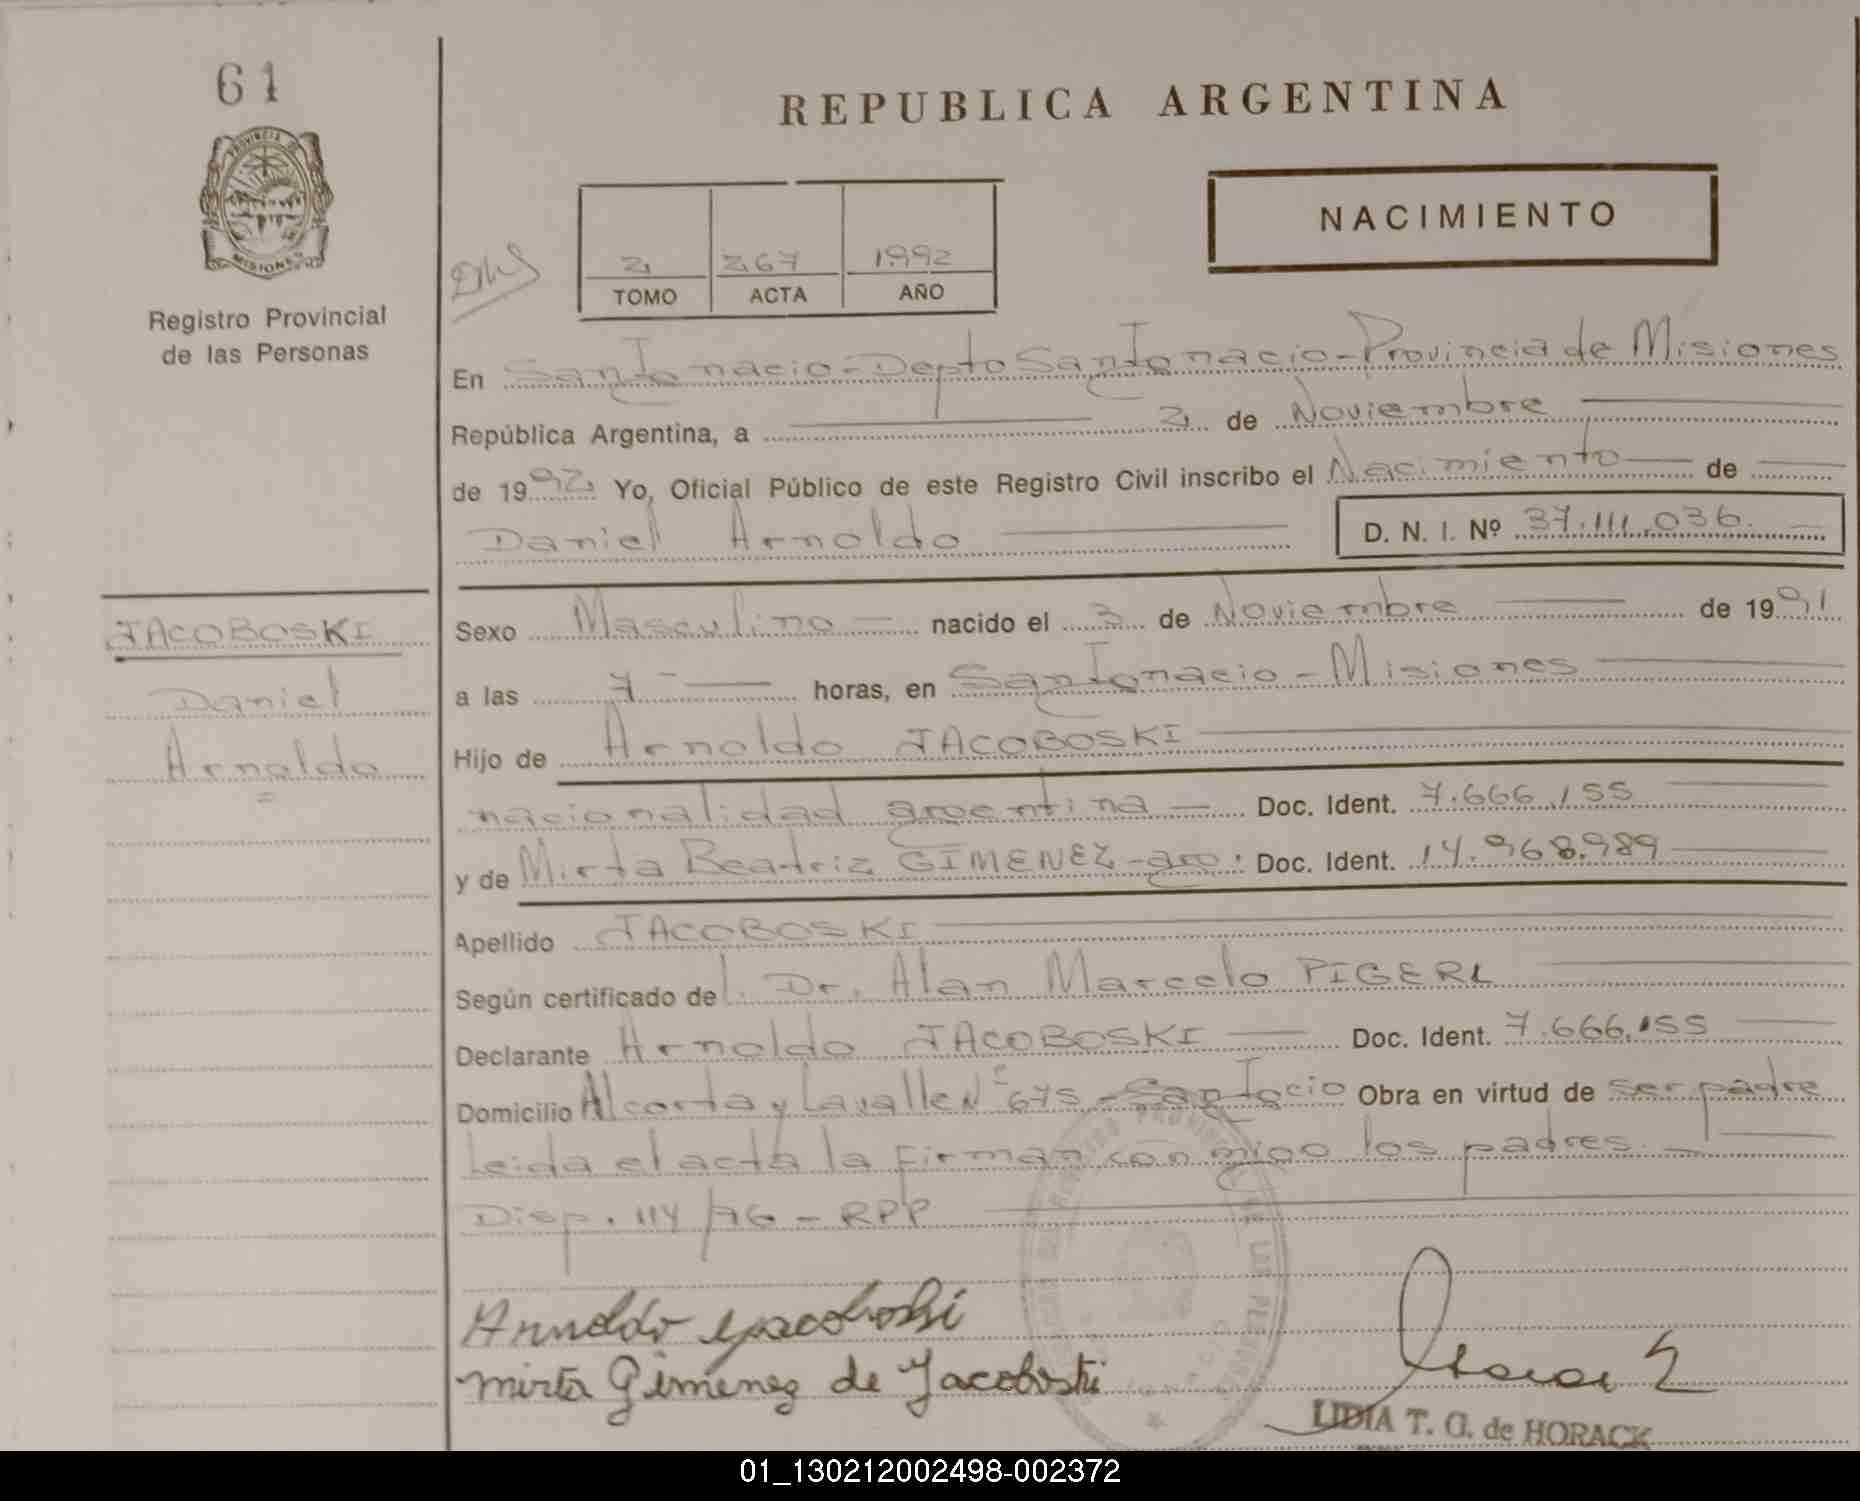 61
PROVINCIA DE
MISIONES
Registro Provincial
de las Personas
REPUBLICA ARGENTINA
NACIMIENTO
2 267 1992
TOMO ACTA AÑO
En San Ignacio - Depto San Ignacio - Provincia de Misiones
República Argentina, a 2 de Noviembre
de 1992 Yo, Oficial Público de este Registro Civil inscribo el Nacimiento de
Daniel Arnoldo D. N. I. Nº 37.111.036.
JACOBOSKI
Daniel
Arnoldo
Sexo Masculino nacido el 3 de Noviembre de 1991
a las 7 horas, en San Ignacio - Misiones
Hijo de Arnoldo JACOBOSKI
nacionalidad argentina Doc. Ident. 7.666.155
y de Mirta Beatriz GIMENEZ - arg. Doc. Ident. 14.968.989
Apellido JACOBOSKI
Según certificado del Dr. Alan Marcelo PIGERL
Declarante Arnoldo JACOBOSKI Doc. Ident. 7.666.155
Domicilio Alcorta y Lavalle Nº 675 - San Igcio Obra en virtud de ser padre
Leida el acta la firman conmigo los padres.
Disp. 114/76 - RPP
Arnoldo Jacoboski
Mirta Gimenez de Jacoboski
LIDIA T. G. de HORACK
01_130212002498-002372